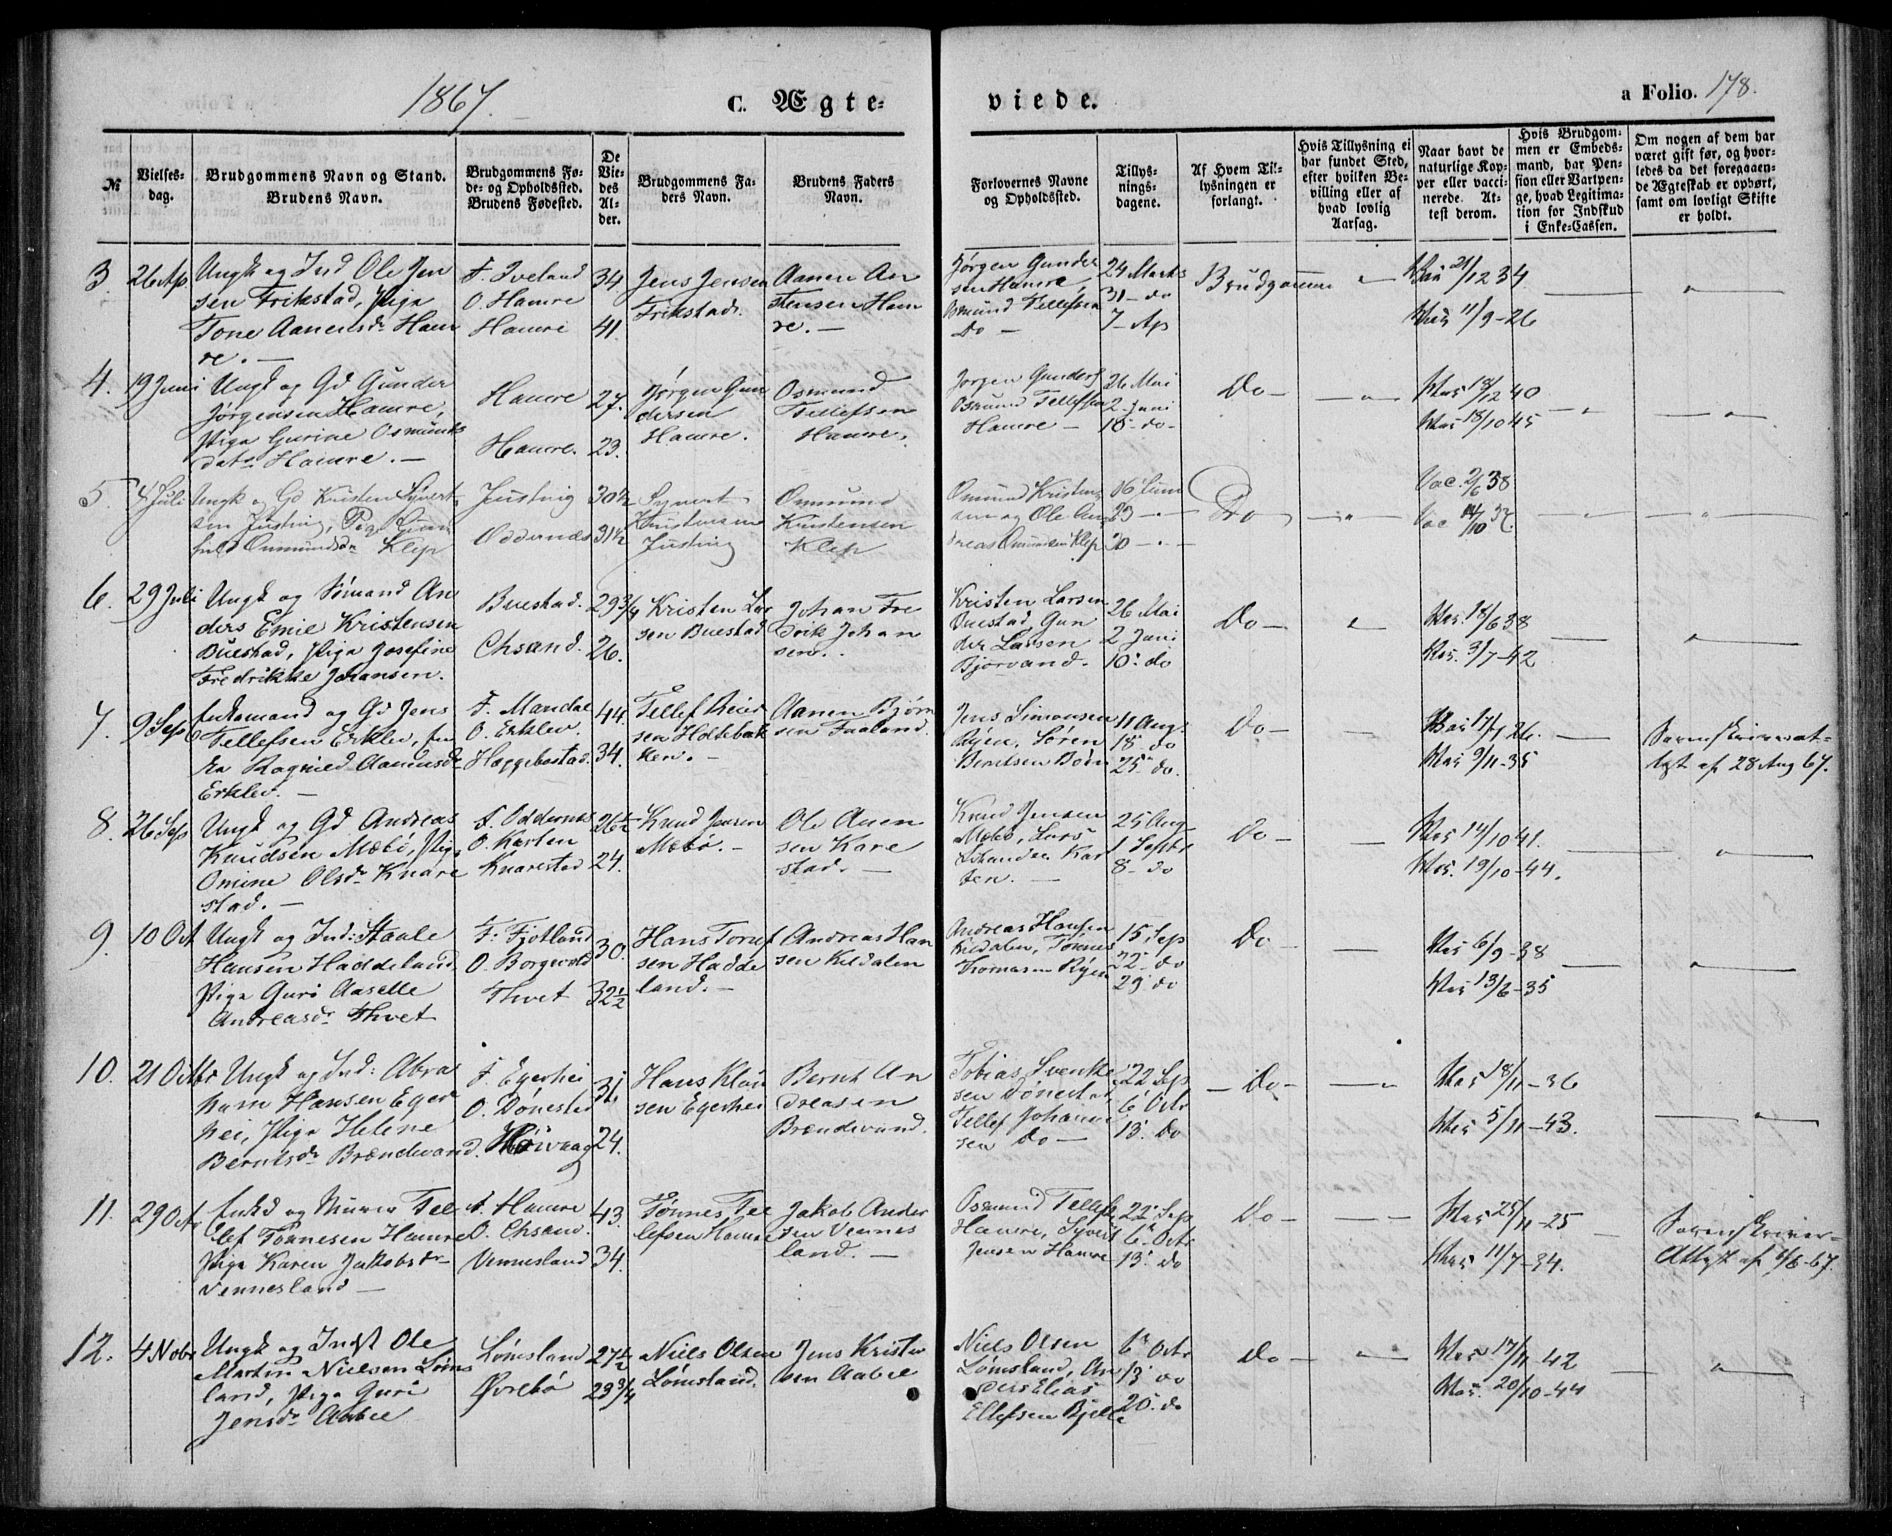 1867.
C. Ægte-
viede.
a Folio. 178.
№
Vielses-
dag.
Brudgommens Navn og Stand.
Brudens Navn.
Brudgommens Fø-
de- og Opholdssted.
Brudens Fødested.
De
Vie-
des
Al-
der.
Brudgommens Fa-
ders Navn.
Brudens Faders
Navn.
Forlovernes Navne
og Opholdssted.
Tillys-
nings-
dagene.
Af Hvem Til-
lysningen er
forlangt.
Hvis Tillysning ei
har fundet Sted,
efter hvilken Be-
villing eller af
hvad lovlig
Aarsag.
Naar havt de
naturlige Kop-
per eller vacci-
nerede. At-
test derom.
Hvis Brudgom-
men er Embeds-
mand, har Pen-
sion eller Vartpen-
ge, hvad Legitima-
tion for Indskud
i Enke-Cassen.
Om nogen af dem har
været gift før, og hvor-
ledes da det foregaaen-
de Ægteskab er ophørt,
samt om lovligt Skifte
er holdt.
3
26 Ap
Ungk og Ind Ole Jen
sen Frikstad, Piga
Tone Aanensdr Ham
re. —
F. Iveland
O. Hamre
Hamre
34
41.
Jens Jensen
Frikstad.
Aanen An
stensen Ham
re. —
Jørgen Gunder
sen Hamre,
Osmund Tellefsen
Do —
24 Marts
31 - do
7 - Ap
Brudgommen
Vac 21/12 34
Vac 11/9 - 26
4.
19 Juni
Ungk og Gd Gunder
Jørgensen Hamre,
Piga Gurine Osmunds
datr Hamre. —
Hamre
Hamre.
27.
23.
Jørgen Gun
dersen
Hamre.
Osmund
Tellefsen
Hamre.
Jørgen Gunders
Osmund Tellefsen
Hamre —
26 Mai
2. Juni
10 - do -
Do -
Vac 13/12 40
Vac 18/10 45
5
4 Juli
Ungk og Gd Kristen Syvert
sen Justvig, Piga Gun
hild Osmundsdr Klep
Justvig
Oddernæs
30½
31½
Syvert
Kristensen
Justvig
Osmund
Kristensen
Klep
Osmund Kristen
sen og Ole An
dreas Osmundsen Klep
16 Juni
23 - -
30 - -
Do
Vac. 2/6 38
Vac 14/10 37.
6.
29 Juli
Ungk og Sømand An
ders Emil Kristensen
Buestad, Piga Josefine
Fredrikke Johansen.
Buestad.
Chsand.
29 3/4
26.
Kristen Lar
sen Buestad
Johan Fre
drik Johan
sen.
Kristen Larsen
Buestad Gun
der Larsen
Bjorvand.
26 Mai
2 Juni
10. do
Do -
Vac 18/6 38
Vac. 3/7 - 42
7.
9 Sep
Enkemand og Gd Jens
Tellefsen Erklev, En
ke Ragnild Aanensdr
Erklev. —
F. Mandal
O. Erklev.
Hæggebostad.
44.
34.
Tellef Reier
sen Holtebak
ken. —
Aanen Bjørn
sen Faaland.
Jens Simonsen
Ryen, Søren
Berntsen Boen
11 Aug.
18 do
25 do.
Do -
Vac 17/1 26.
Vac 9/11 - 35
Sorenskriverat-
test af 28 Aug 67.
8.
26 Sep
Ungk og Gd Andreas
Knudsen Mæbø, Piga
Omine Olsdr Knare
stad. —
F. Oddernæs
O. Karten
Knarestad
26½
24.
Knud Jensen
Mæbø. —
Ole Aanen
sen Knare
stad. —
Knud Jensen
Mæbø, Lars
Kar
ten. —
25 Aug
1 Septbr
8 - do
Do -
Vac 14/10 41.
Vac. 19/10 - 44.
9.
10 Oct
Ungk og Ind: Staale
Hansen Haddeland
Piga Guri Aaselle
Andreasdr Thvet
F. Fjotland
O. Borgevold
Thvet
30.
32½
Hans Toruf
sen Hadde
land. —
Andreas Han
sen Kildalen
Andreas Hansen
Kildalen, Tønnes
Thomasen Ryen
15 Sep
22 do
29 do
Do -
Vac 6/9 - 38
Vac 13/6 - 35
10.
21 Octbr
Ungk og Ind: Abra
ham Hansen Eger
hei, Piga Helene
Berntsdr Brændevand.
F. Egerhei
O. Dønestad
Høivaag
31.
24.
Hans Klau
sen Egerhei
Bernt An
dreasen
Brændevand.
Tobias Svenke
sen Dønestad
Tellef Johann
sen Do —
22 Sep
6 Octr
13. Do
- Do -
Vac 18/11 - 36
Vac 5/11 - 43.
11.
29 Octr
Enkd og Murer Tel
lef Tønnesen Hamre
Piga Karen Jakobsdr
Vennesland —
F. Hamre
O. Chsand.
Vennesland
43.
34.
Tønnes Tel
lefsen Hamre
Jakob Ander
sen Vennes
land. —
Osmund Tellefs
Hamre, Syvert
Jensen Hamre
22 Sep
6 Octr
13. do
Do -
Vac 25/11 - 25
Vac 11/7 - 34.
Sorenskriver-
Attest af 4/6 - 67.
12.
4 Nobr
Ungk og Indst Ole
Martin Nielsen Løms
land, Piga Guri
Jensdr Aabel
Lømsland
Øvrebø
27½
23 3/4
Niels Olsen
Lømsland.
Jens Kristen
sen Aabel
Niels Olsen
Lømsland, An
ders Elias
Ellefsen Bjelle
6 Octr
13 do
20. do
Do -
Vac 17/11 - 42
Vac. 20/10 - 44